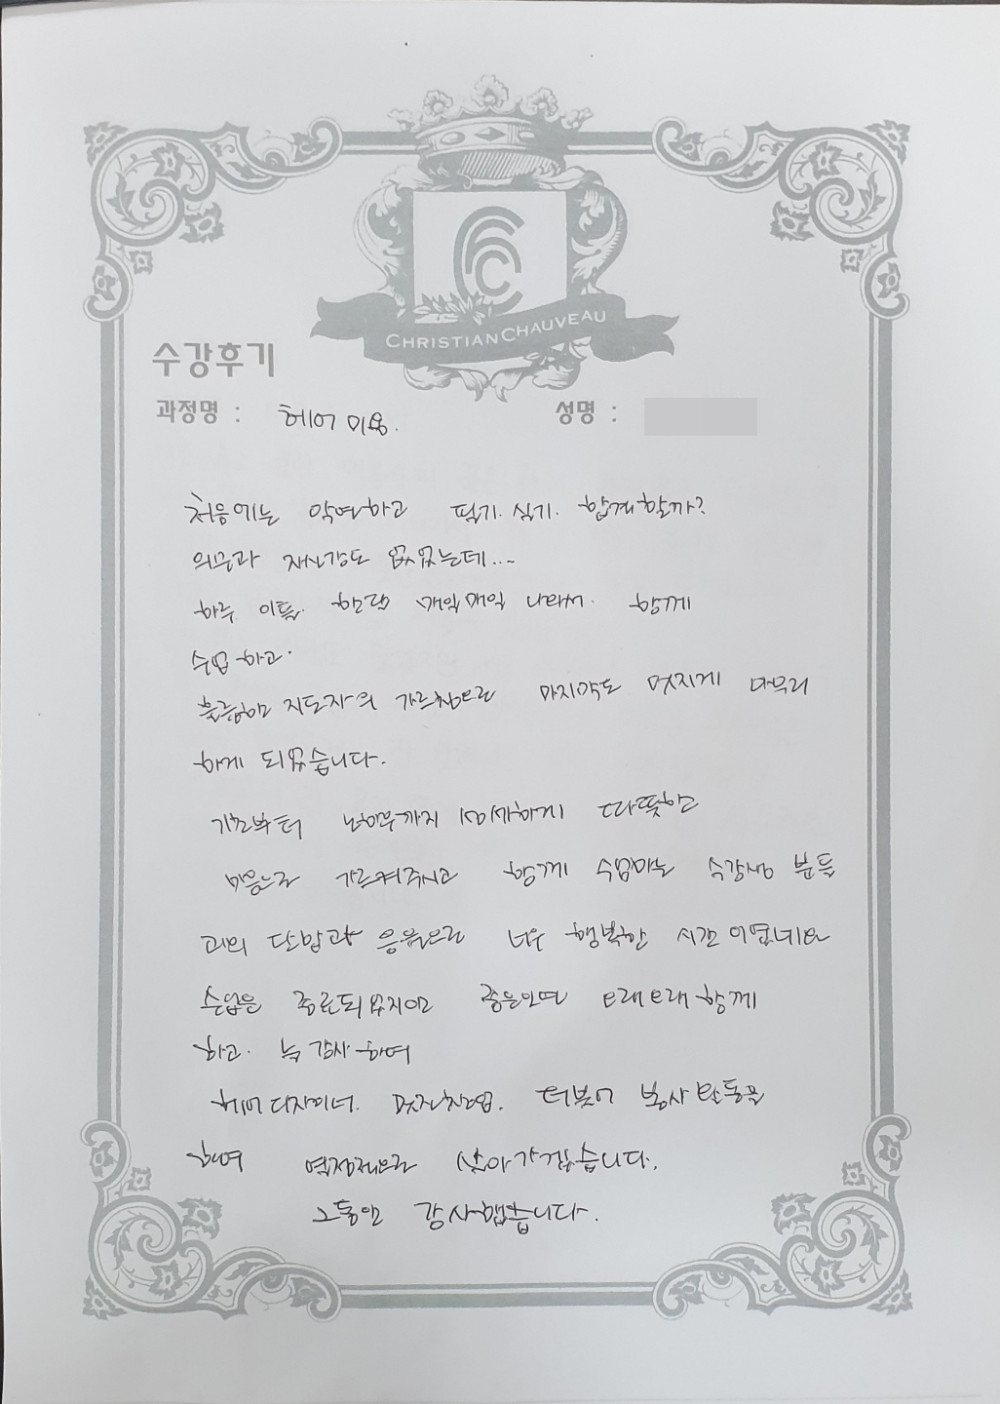 CHRISTIANCHAUVEAU
수강후기
과정명 : 헤어 미용.
성명 :
처음에는 막연하고 필기. 실기. 합격할까?
의문과 자신감도 없었는데....
하루 이틀. 한달 매일매일 나와서. 함께
수업 하고.
훌륭한 지도자의 가르침으로 마지막도 멋지게 마무리
하게 되었습니다.
기초부터 너무까지 섬세하게 따뜻한
마음으로 가르쳐주시고 함께 수업하는 수강생 분들
과의 단합과 응원으로 너무 행복한 시간 이였네요
수업은 종료되었지만 좋은인연 오래오래 함께
하고. 늘 감사 하며
헤어 디자이너. 멋진직업. 더불어 봉사 활동을
하며 열정적으로 살아가겠습니다.
그동안 감사했습니다.